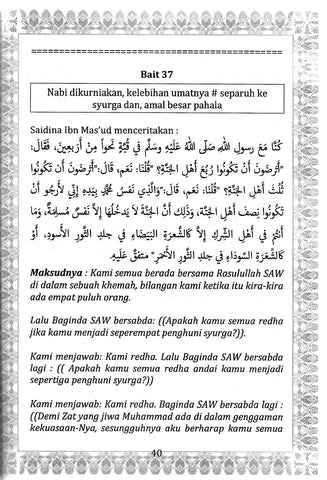 ================================================
Bait 37
Nabi dikurniakan, kelebihan umatnya # separuh ke
syurga dan, amal besar pahala
Saidina Ibn Mas'ud menceritakan :
كُنَّا مَعَ رسولِ اللهِ صَلَّى اللهُ عَلَيْهِ وسَلَّم فِي قُبَّةٍ نَحواً مِنْ أَرْبَعِينَ، فَقَالَ:
"أَتَرْضَونَ أَن تَكُونُوا رُبُعَ أَهْلِ الجَنَّةِ؟" قُلْنَا: نَعَم، قَالَ:"أَتَرْضَونَ أَن تَكُونُوا
ثُلُثَ أَهْلِ الجَنَّةِ؟ "قُلْنَا: نَعَم، قَالَ:"وَالَّذِي نَفسُ مُحَمَّدٍ بِيَدِهِ إِنِّي لَأَرجُو أَنْ
تَكُونُوا نِصفَ أَهْلِ الجَنَّةِ، وَذَلِك أَنَّ الجَنَّةَ لَا يَدخُلُهَا إِلاَّ نَفْسٌ مُسلِمَةٌ، وَمَا
أَنتُم فِي أَهْلِ الشِّركِ إِلاَّ كَالشَّعرَةِ البَيْضَاءِ فِي جلدِ الثَّورِ الأَسوَدِ، أَوْ
كَالشَّعرَةِ السَّودَاءِ فِي جلدِ الثَّورِ الأَحمَرِ" متفق عليه.
Maksudnya : Kami semua berada bersama Rasulullah SAW
di dalam sebuah khemah, bilangan kami ketika itu kira-kira
ada empat puluh orang.
Lalu Baginda SAW bersabda: ((Apakah kamu semua redha
jika kamu menjadi seperempat penghuni syurga?)).
Kami menjawab: Kami redha. Lalu Baginda SAW bersabda
lagi : (( Apakah kamu semua redha andai kamu menjadi
sepertiga penghuni syurga?))
Kami menjawab: Kami redha. Baginda SAW bersabda lagi :
((Demi Zat yang jiwa Muhammad ada di dalam genggaman
kekuasaan-Nya, sesungguhnya aku berharap kamu semua
40